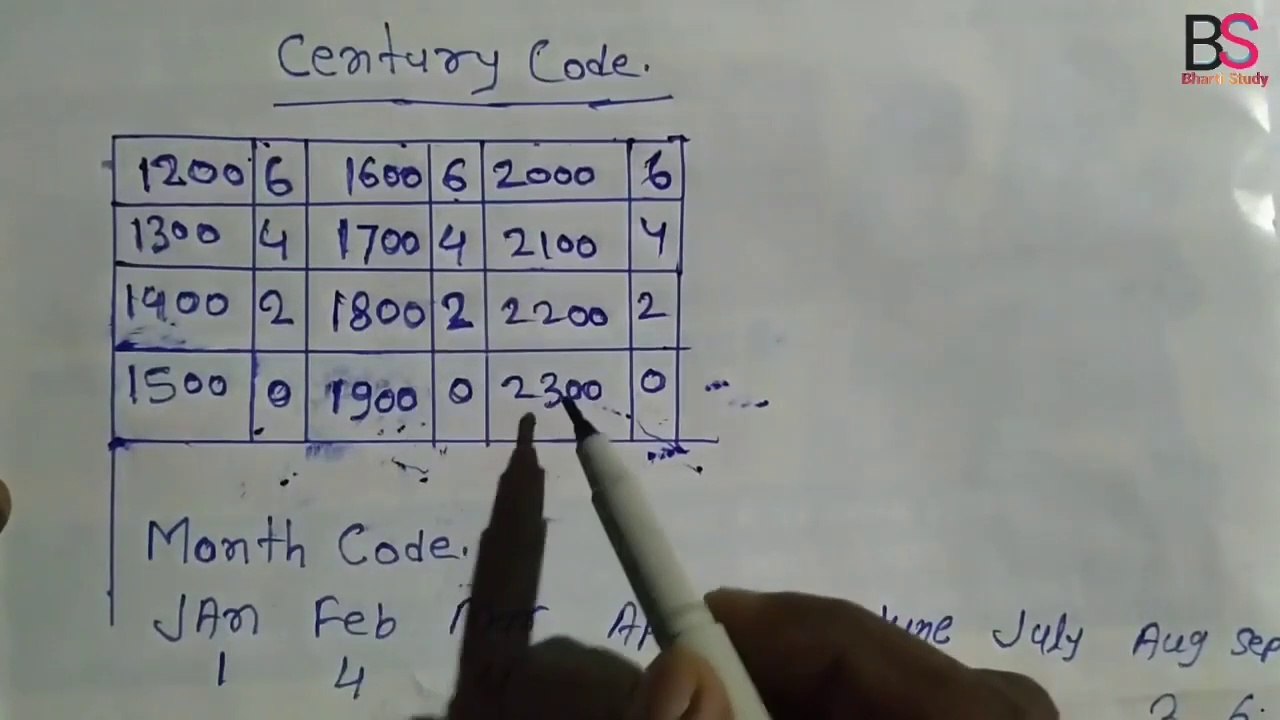 BS
Bharti Study
Century Code.
1200 6 1600 6 2000 6
1300 4 1700 4 2100 4
1400 2 1800 2 2200 2
1500 0 1900 0 2300 0
Month Code.
JAn Feb July Aug Sep
1 4